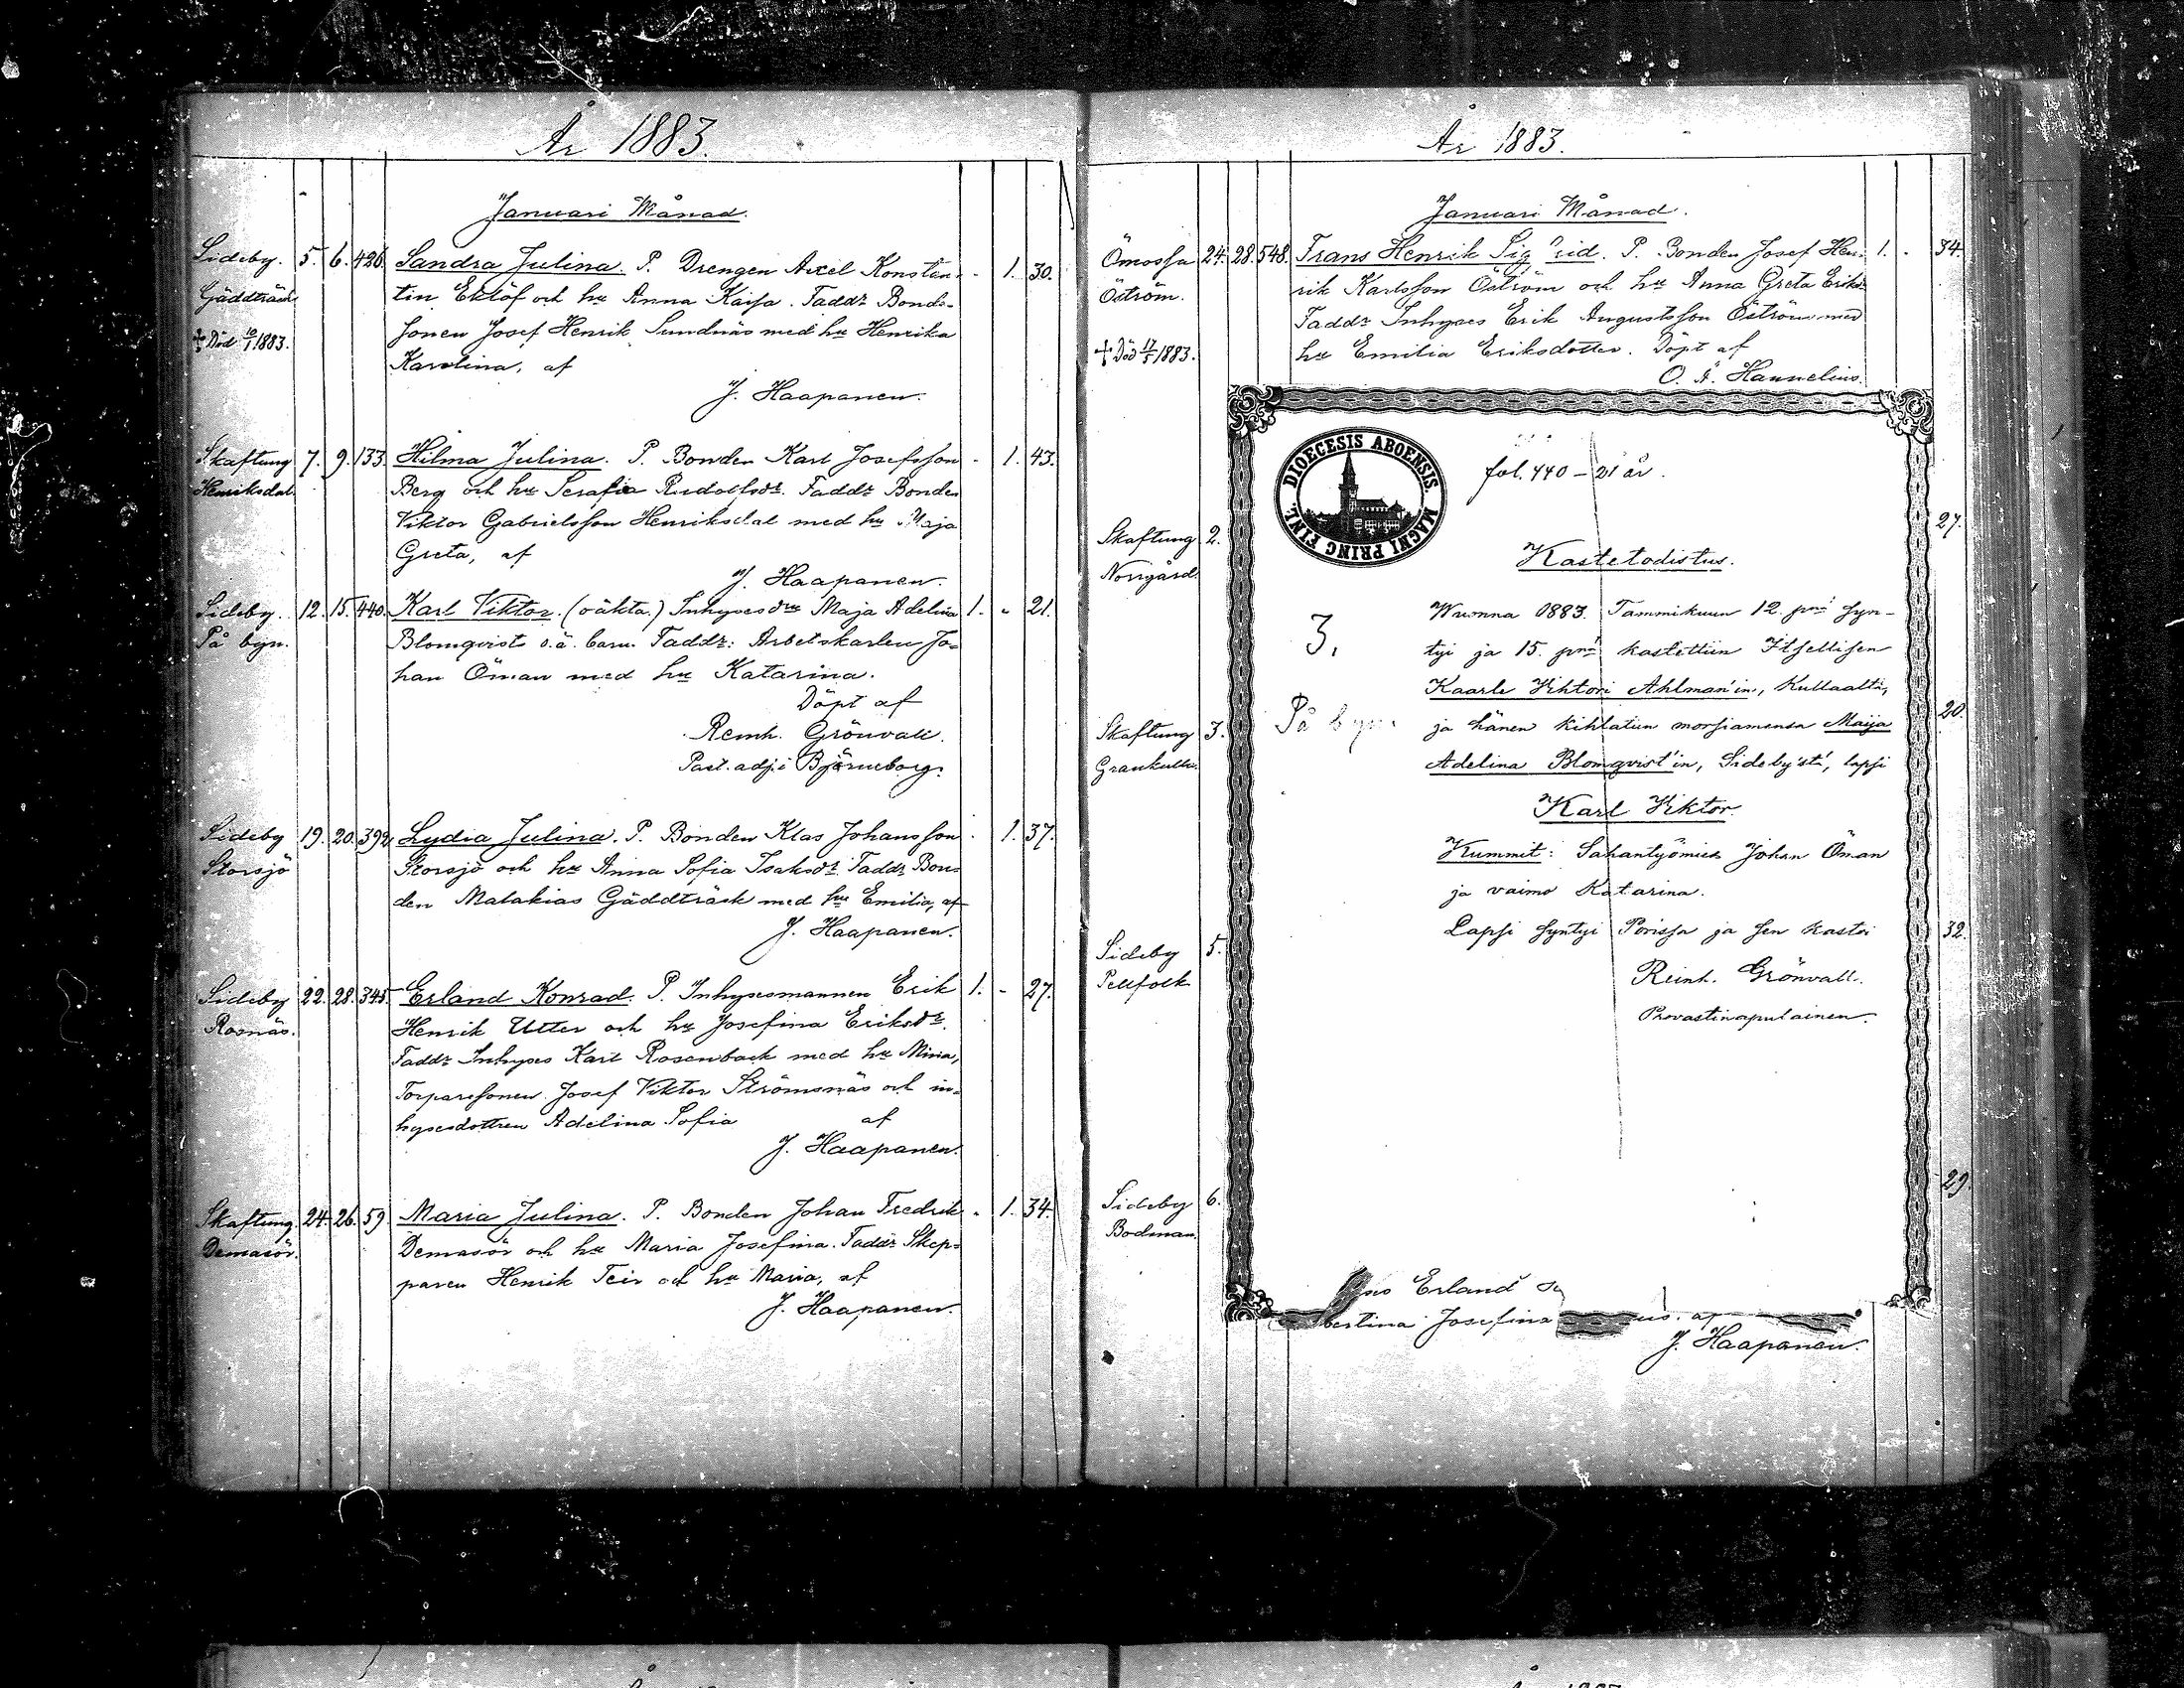 År 1883.
Januari Månad.
Sideby. 5. 6. 426. Sandra Julina. P. Drengen Axel Konstan- - 1. 30.
Gäddträsk tin Eklöf och hu Anna Kaisa. Faddr Bonde-
sonen Josef Henrik Sundnäs med hu Henrika
+ Död 10/1 1883.
Karolina, af
J. Haapanen.
Skaftung 7. 9. 133. Hilma Julina. P. Bonden Karl Josefsson - 1. 43.
Henriksdal Berg och hu Serafia Rudolfsdr. Faddr Bonden
Viktor Gabrielsson Henriksdal med hu Maja
Greta, af
J. Haapanen.
Sideby. 12. 15. 440. Karl Viktor. (oäkta.) Inhysesdrn Maja Adelina 1. - 21.
På byn. Blomqvists o.ä. barn. Faddr: Arbetskarlen Jo-
han Öman med hu Katarina.
Döpt af
Reinh. Grönvall.
Past. adj. i Björneborg.
Sideby 19. 20. 392. Lydia Julina. P. Bonden Klas Johansson - 1. 37.
Storsjö Storsjö och hu Anna Sofia Isaksdr. Faddr Bon-
den Malakias Gäddträsk med hu Emilia, af
J. Haapanen.
Sideby 22. 28. 345. Erland Konrad. P. Inhysesmannen Erik 1. - 27.
Rosnäs. Henrik Utter och hu Josefina Eriksdr.
Faddr Inhyses Karl Rosenback med hu Mina,
Torparesonen Josef Viktor Strömsnäs och in-
hysesdottren Adelina Sofia af
J. Haapanen.
Skaftung. 24. 26. 59 Maria Julina. P. Bonden Johan Fredrik - 1. 34.
Demasör. Demasör och hu Maria Josefina. Faddr Skep-
paren Henrik Teir och hu Maria, af
J. Haapanen.
År 1883.
Januari Månad.
Ömossa 24. 28. 548. Frans Henrik Sigfrid. P. Bonden Josef Hen- 1. - 34.
Öström. rik Karlsson Öström och hu Anna Greta Eriksdr
Faddr Inhyses Erik Augustsson Öström med
+ Död 17/5 1883. hu Emilia Eriksdotter. Döpt af
O. A. Hannelius.
DIOECESIS ABOENSIS. MAGNI PRINC FINL.
fol. 440 - 21 år.
27.
Skaftung 2.
Norrgård.
Kastetodistus.
3.
Wuonna 1883. Tammikuun 12. pnä syn-
tyi ja 15. pnä kastettiin Itsellisen
Kaarle Vihtori Ahlman'in, Kullaalta,
På byn. ja hänen kihlatun morsiamensa Maija
20.
Skaftung 3.
Grankulla.
Adelina Blomqvist'in, Sideby'stä, lapsi
Karl Viktor.
Kummit: Sahantyömies Johan Öman
ja vaimo Katarina.
Lapsi syntyi Porissa ja sen kastoi
32.
Sideby 5.
Pellfolk
Reinh. Grönvall.
Provastinapulainen.
29.
Sideby 6.
Bodman.
Erland
bertina Josefina af
J. Haapanen.